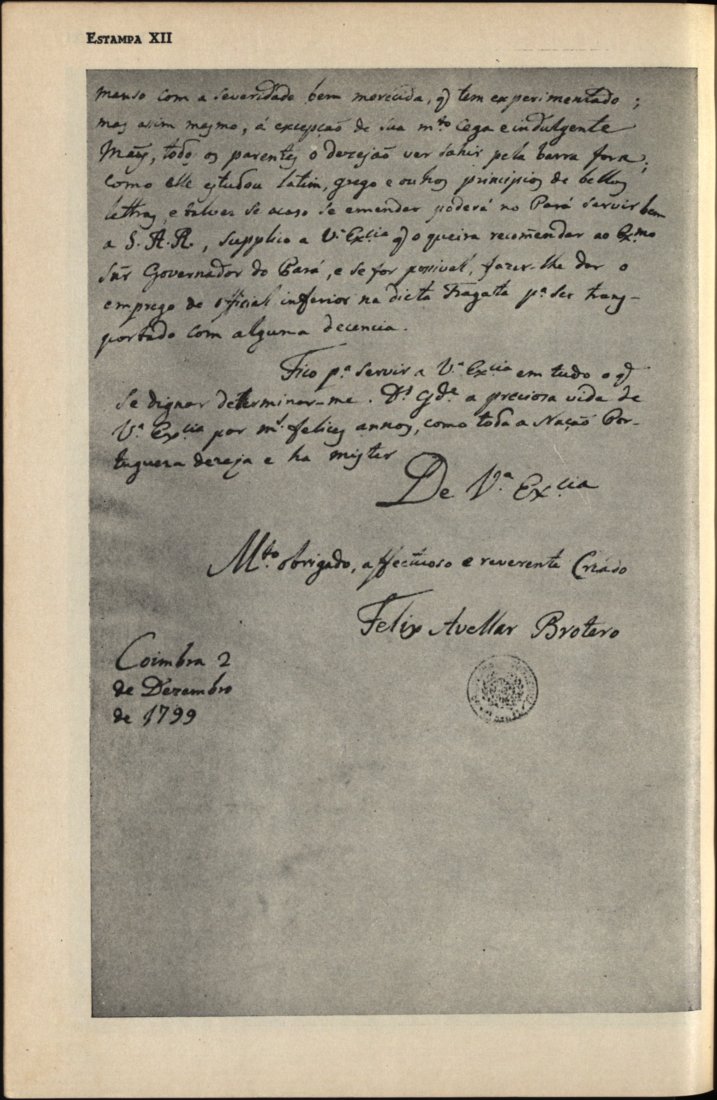 ESTAMPA XII
manso com a severidade bem merecida, q̃ tem experimentado;
mas assim mesmo, á excepção de sua m.to Cega e indulgente
Mãy, todos os parentes o dezejão ver sahir pela barra fora;
como elle estudou latim, grego e outros principios de bellas
lettras, e talves se acaso se emendar poderá no Pará servir bem
a S. A. R., supplico a V.a Ex.cia q̃ o queira recomendar ao Ex.mo
Sñr Governador do Pará, e se for possivel, fazer-lhe dar o
emprego de official inferior na dicta Fragata p.a ser trans-
portado com alguma decencia.
Fico p.a servir a V.a Ex.cia em tudo o q̃
se dignar determinar-me. D.s G.de a preciosa vida de
V.a Ex.cia por m.s felices annos, como toda a Nação Por-
tugueza dezeja e ha mister
De V.a Ex.cia
M.to obrigado, affectuoso e reverente Criado
Felix Avellar Brotero
Coimbra 2
de Dezembro
de 1799